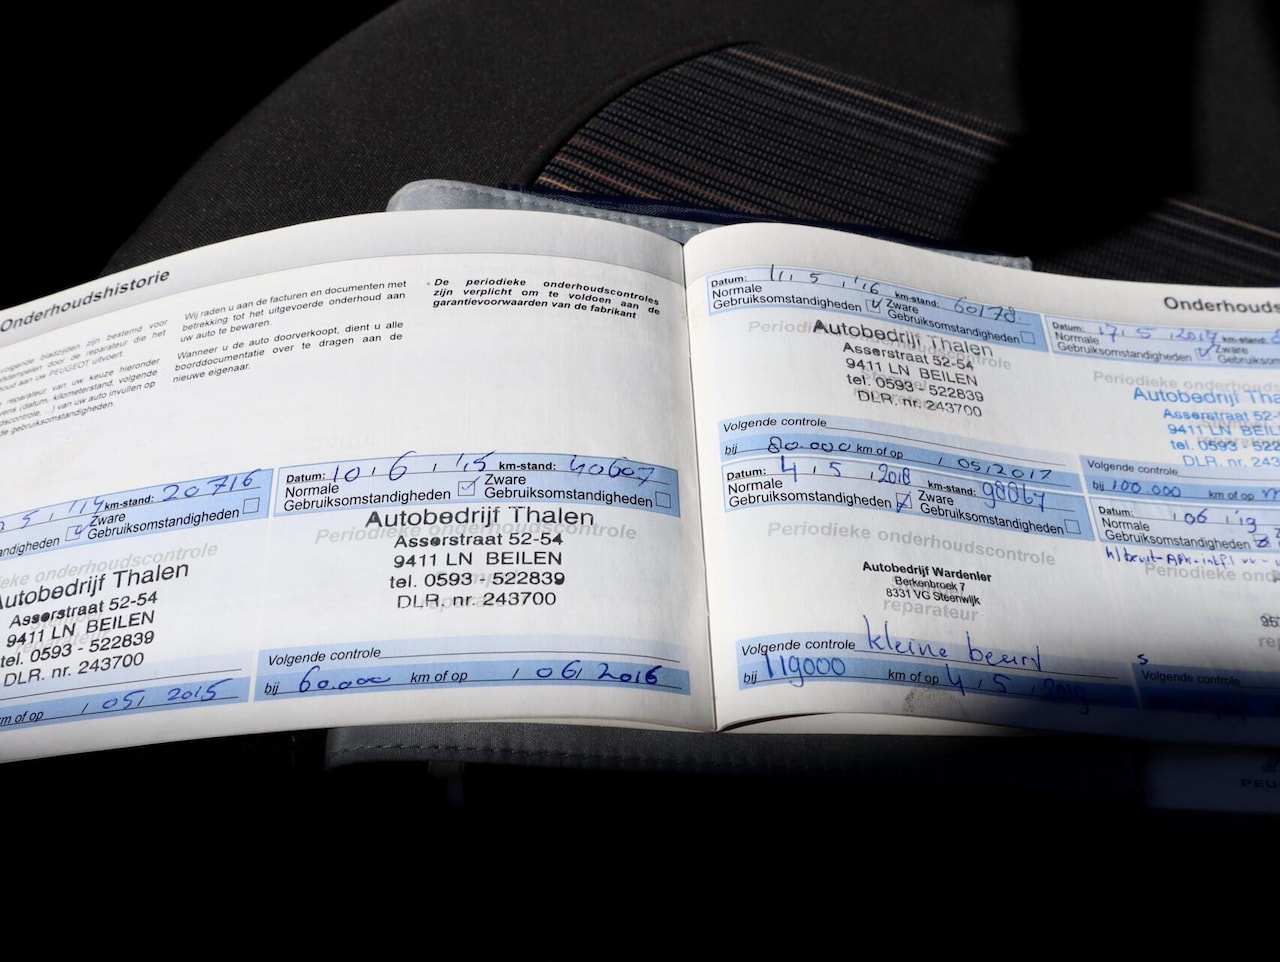 Onderhoudshistorie
bestemd voor
bladzijden zijn
door de reparateur die het
aan uw PEUGEOT uitvoert.
reparateur van uw keuze hieronder
(datum, kilometerstand, volgende
...) van uw auto invullen op
de gebruiksomstandigheden.
Wij raden u aan de facturen en documenten met
betrekking tot het uitgevoerde onderhoud aan
uw auto te bewaren.
Wanneer u de auto doorverkoopt, dient u alle
boorddocumentatie over te dragen aan de
nieuwe eigenaar.
De periodieke onderhoudscontroles
zijn verplicht om te voldoen aan de
garantievoorwaarden van de fabrikant
5, '14 km-stand: 20716
Zware
Gebruiksomstandigheden
onderhoudscontrole
Autobedrijf Thalen
Asserstraat 52-54
9411 LN BEILEN
tel. 0593 - 522839
DLR. nr. 243700
km of op / 05/ 2015
Datum: 10, 6, '15 km-stand: 40607
Normale Zware
Gebruiksomstandigheden Gebruiksomstandigheden
Periodieke onderhoudscontrole
Autobedrijf Thalen
Asserstraat 52-54
9411 LN BEILEN
tel. 0593 - 522839
DLR. nr. 243700
Volgende controle
bij 60.000 km of op / 06/ 2016
Datum: 11, 5, '16 km-stand: 60178
Normale Zware
Gebruiksomstandigheden Gebruiksomstandigheden
Autobedrijf Thalen
Asserstraat 52-54
9411 LN BEILEN
tel. 0593 - 522839
DLR. nr. 243700
Volgende controle
bij 80.000 km of op / 05/2017
Datum: 17, 5, 2017 km-stand:
Normale Zware
Gebruiksomstandigheden Gebruiksomstandigheden
Periodieke onderhouds
Autobedrijf Tha
Asserstraat 52-
9411 LN BEIL
tel. 0593 - 522
Volgende controle
bij 100.000 km of op
Datum: 4, 5, 2018 km-stand: 98067
Normale Zware
Gebruiksomstandigheden Gebruiksomstandigheden
Periodieke onderhoudscontrole
Autobedrijf Wardenier
Berkenbroek 7
8331 VG Steenwijk
reparateur
Volgende controle kleine beurt
bij 119000 km of op 4, 5, 2019
Datum: , 06, '19 km-stand:
Normale Zware
Gebruiksomstandigheden
Periodieke onde
Volgende controle